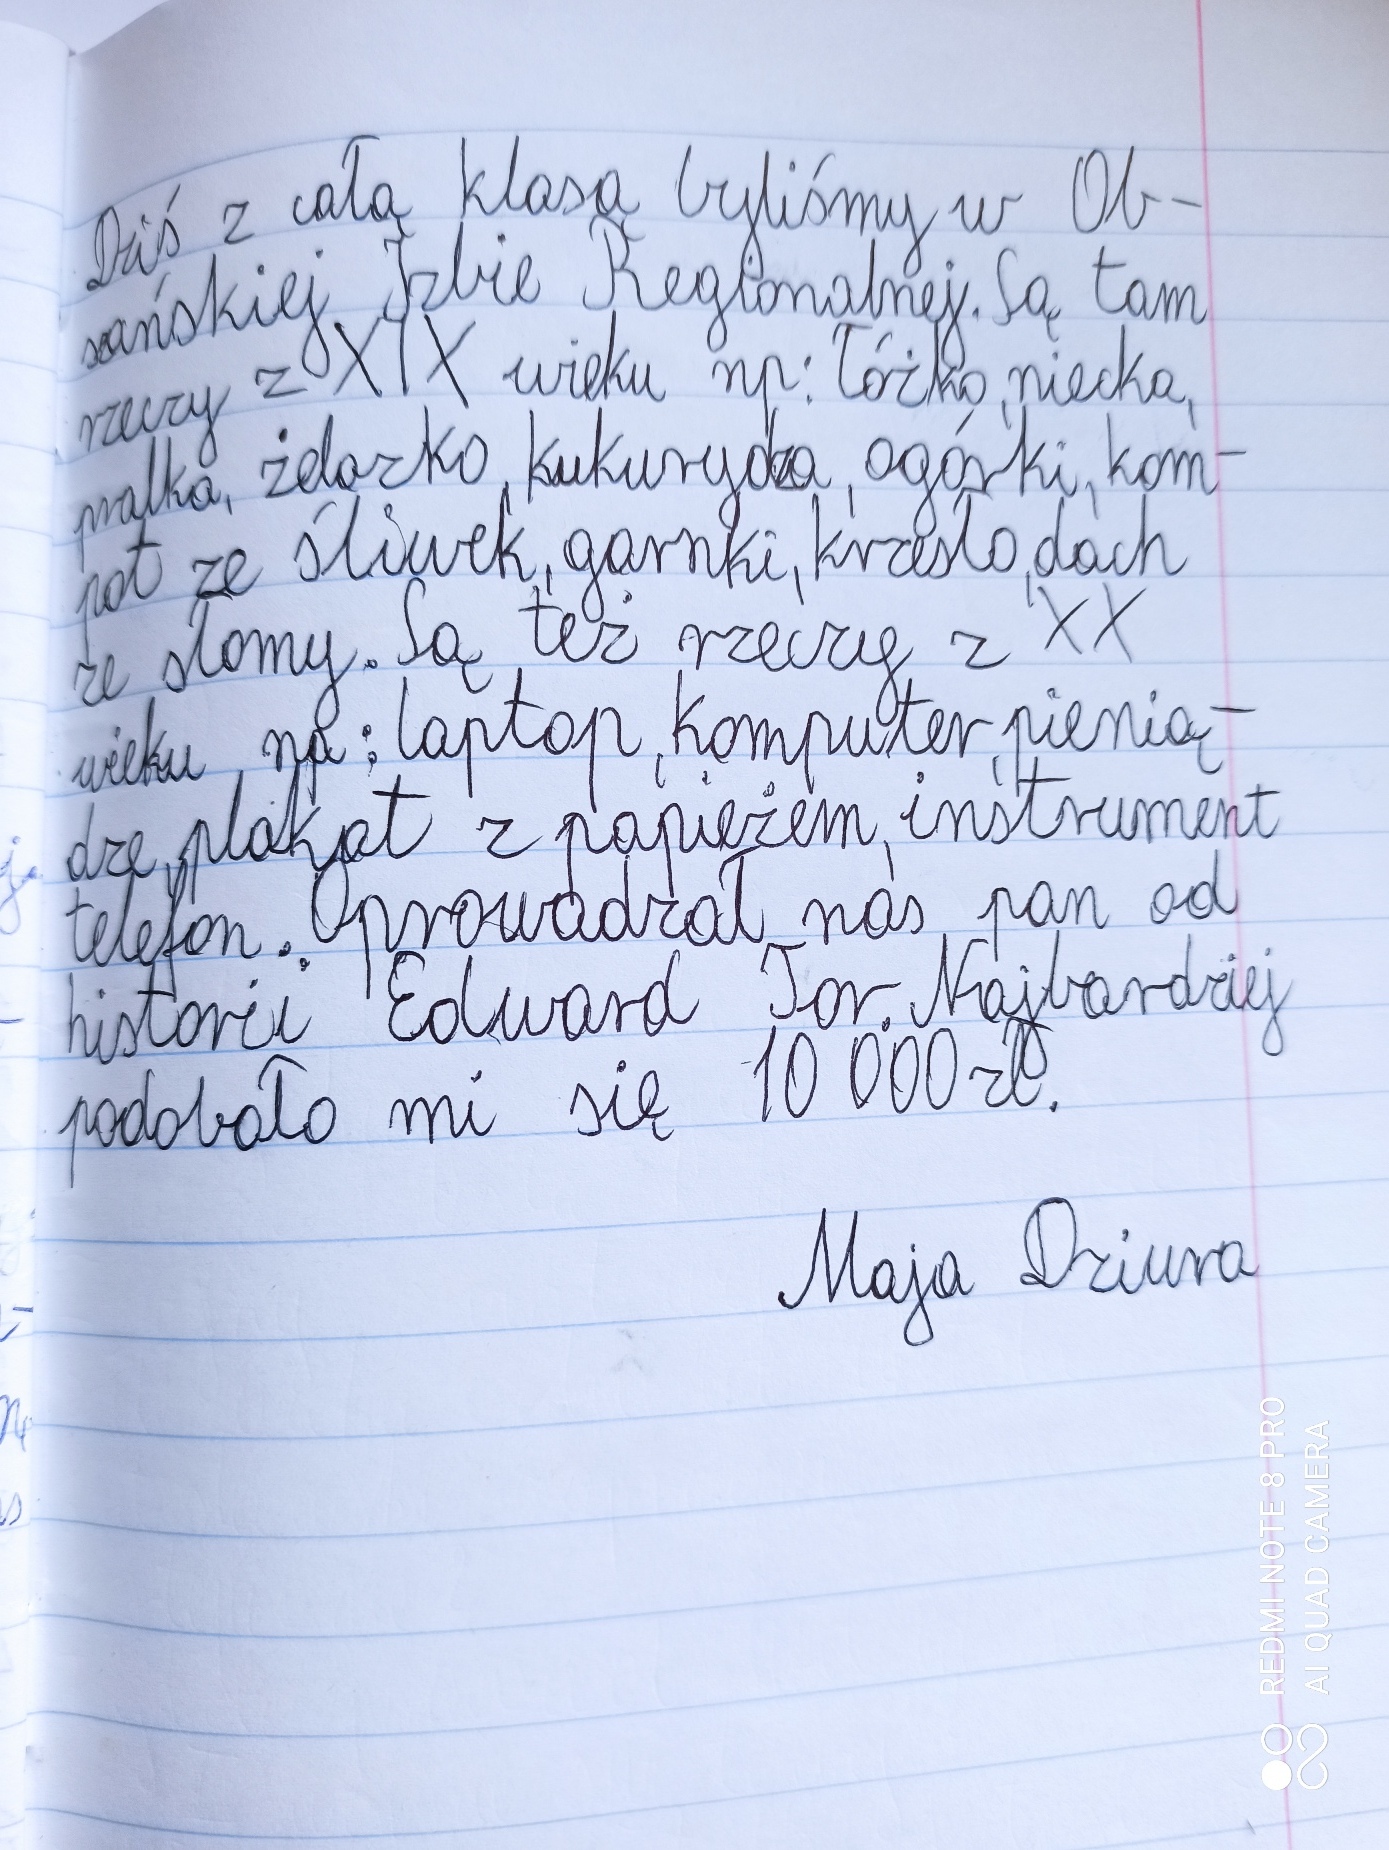 Dziś z całą klasą byliśmy w Ob-
szańskiej Izbie Regionalnej. Są tam
rzeczy z XIX wieku np: łóżko, niecka,
pralka, żelazko, kukurydza, ogórki, kom-
pot ze śliwek, garnki, krzesło, dach
ze słomy. Są też rzeczy z XX
wieku np: laptop, komputer, pienią-
dze, plakat z papieżem, instrument
telefon. Oprowadzał nas pan od
historii Edward Tor. Najbardziej
podobało mi się 10 000 zł.
Maja Dziura
REDMI NOTE 8 PRO
AI QUAD CAMERA